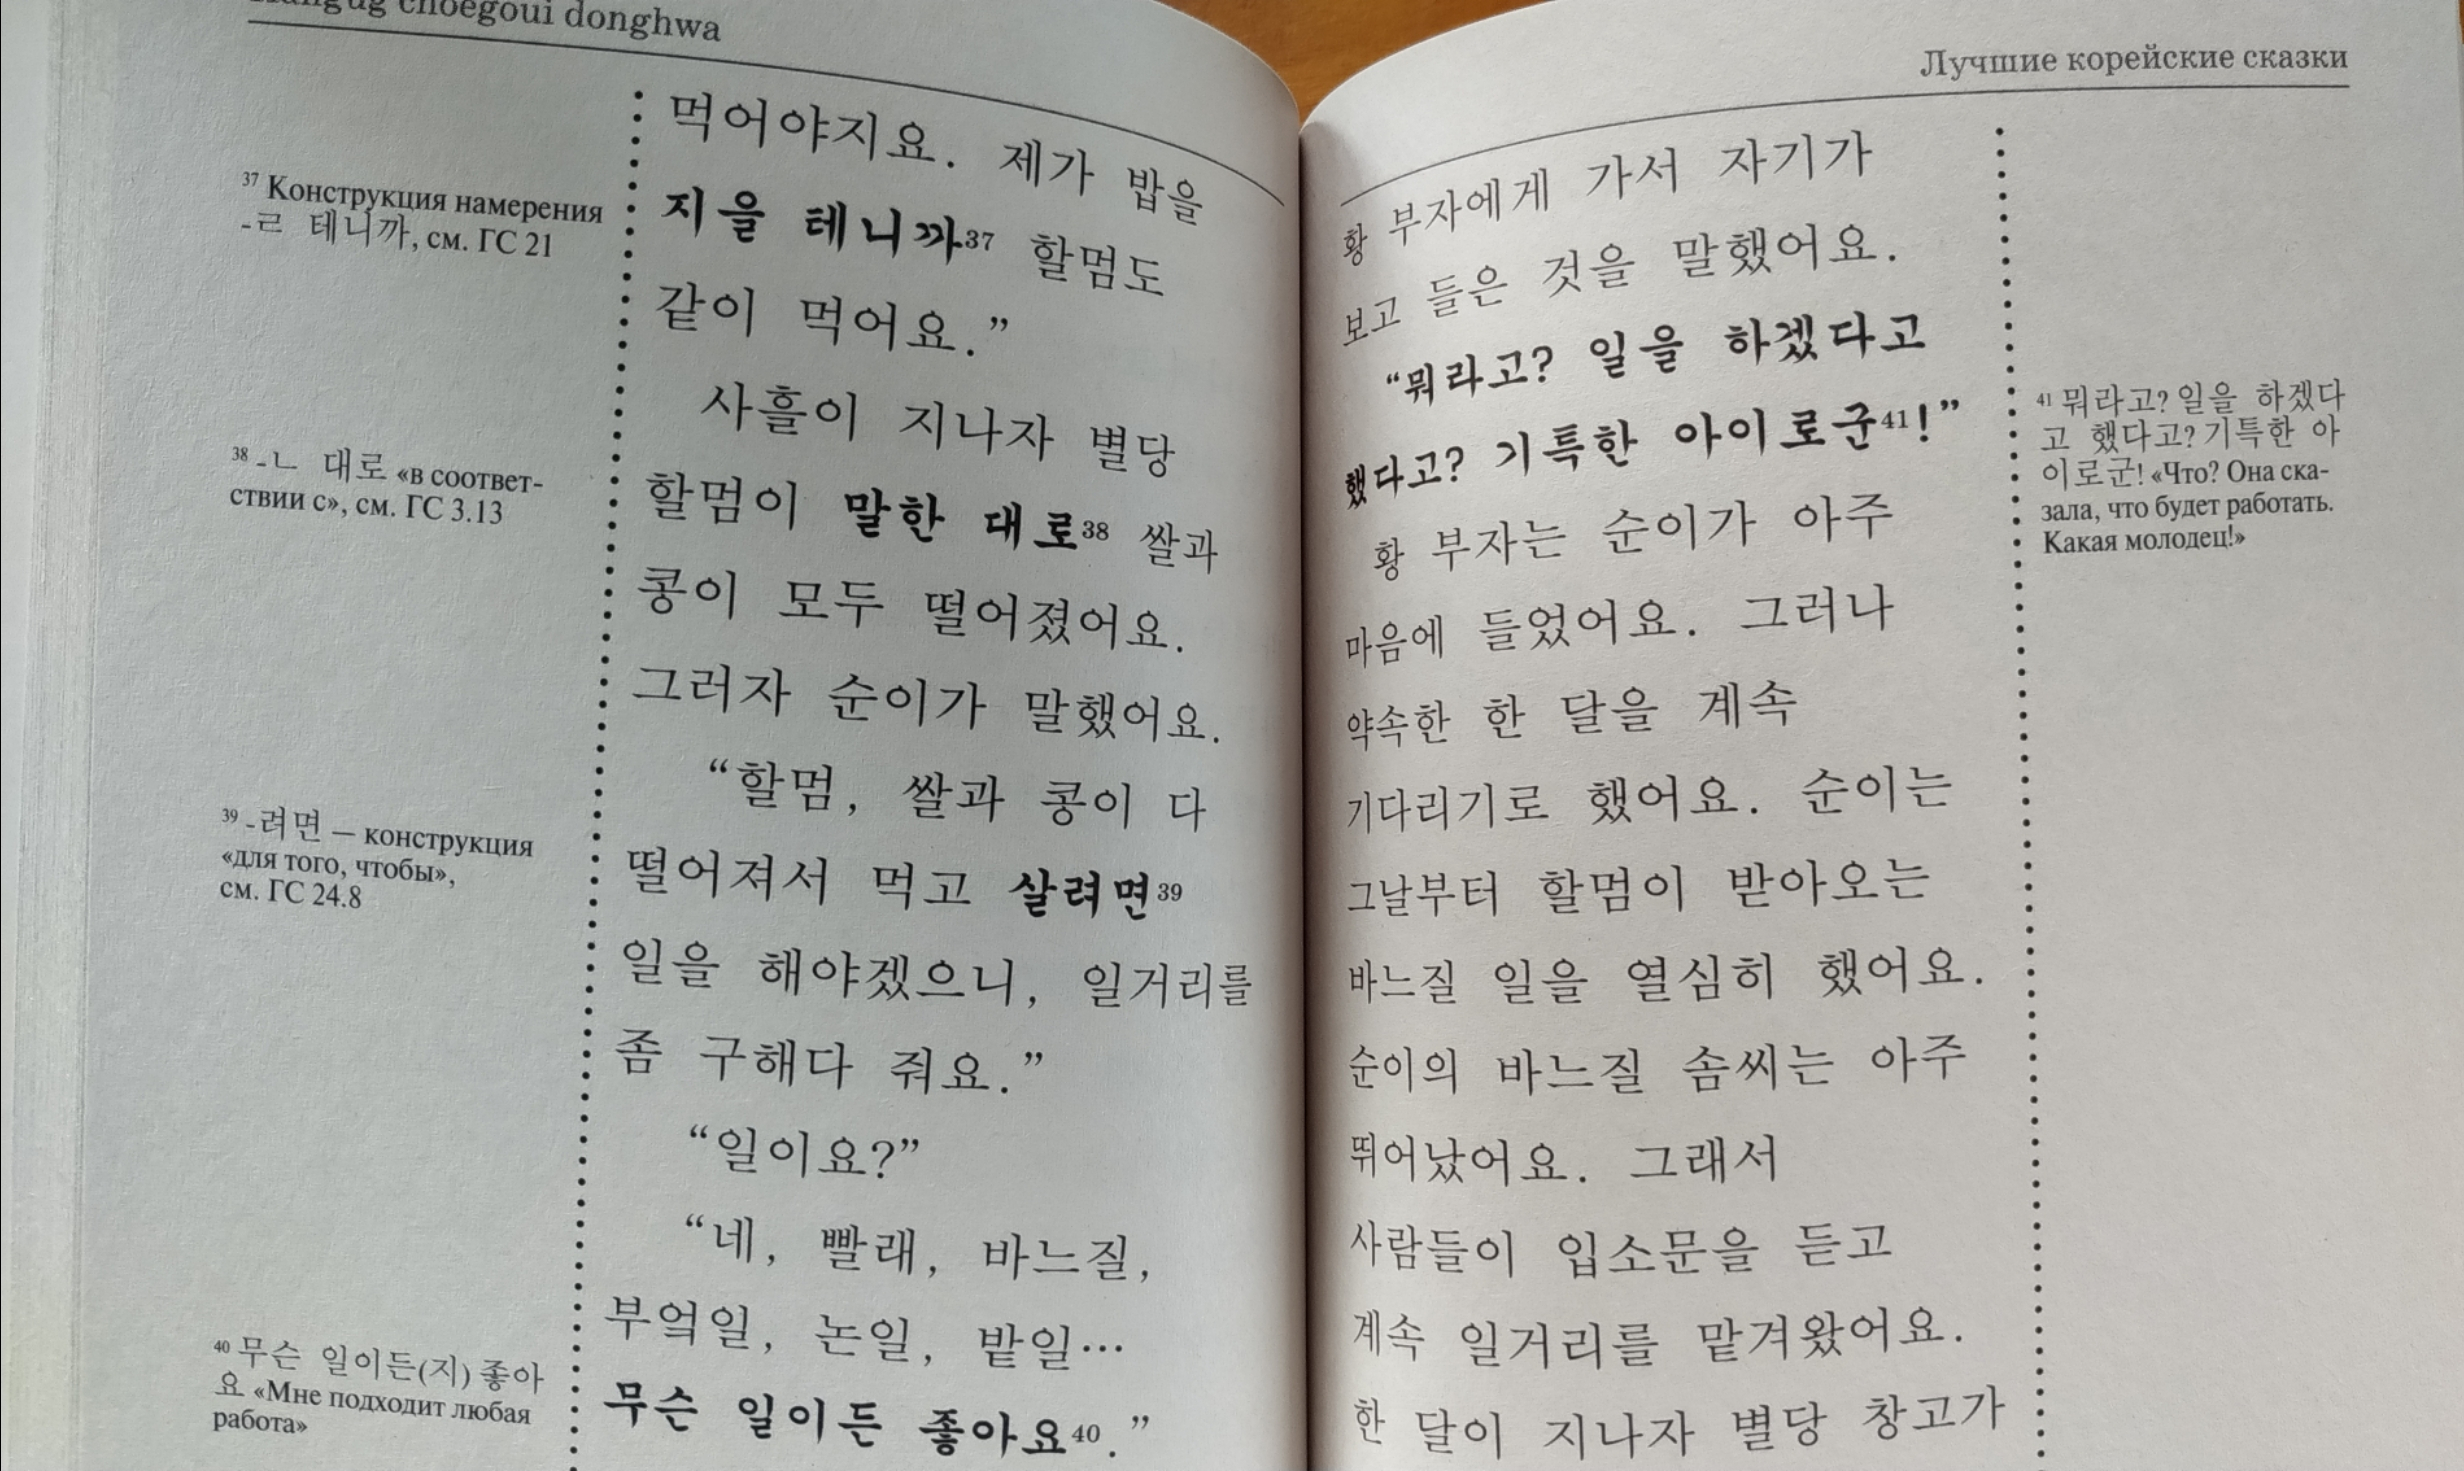 choegoui donghwa
먹어야지요. 제가 밥을
지을 테니까37 할멈도
같이 먹어요.”
사흘이 지나자 별당
할멈이 말한 대로38 쌀과
콩이 모두 떨어졌어요.
그러자 순이가 말했어요.
“할멈, 쌀과 콩이 다
떨어져서 먹고 살려면39
일을 해야겠으니, 일거리를
좀 구해다 줘요.”
“일이요?”
“네, 빨래, 바느질,
부엌일, 논일, 밭일…
무슨 일이든 좋아요40.”
37 Конструкция намерения
-ㄹ 테니까, см. ГС 21
38 -ㄴ 대로 «в соответ-
ствии с», см. ГС 3.13
39 -려면 — конструкция
«для того, чтобы»,
см. ГС 24.8
40 무슨 일이든(지) 좋아
요 «Мне подходит любая
работа»
Лучшие корейские сказки
황 부자에게 가서 자기가
보고 들은 것을 말했어요.
“뭐라고? 일을 하겠다고
했다고? 기특한 아이로군41!”
황 부자는 순이가 아주
마음에 들었어요. 그러나
약속한 한 달을 계속
기다리기로 했어요. 순이는
그날부터 할멈이 받아오는
바느질 일을 열심히 했어요.
순이의 바느질 솜씨는 아주
뛰어났어요. 그래서
사람들이 입소문을 듣고
계속 일거리를 맡겨왔어요.
한 달이 지나자 별당 창고가
41 뭐라고? 일을 하겠다
고 했다고? 기특한 아
이로군! «Что? Она ска-
зала, что будет работать.
Какая молодец!»